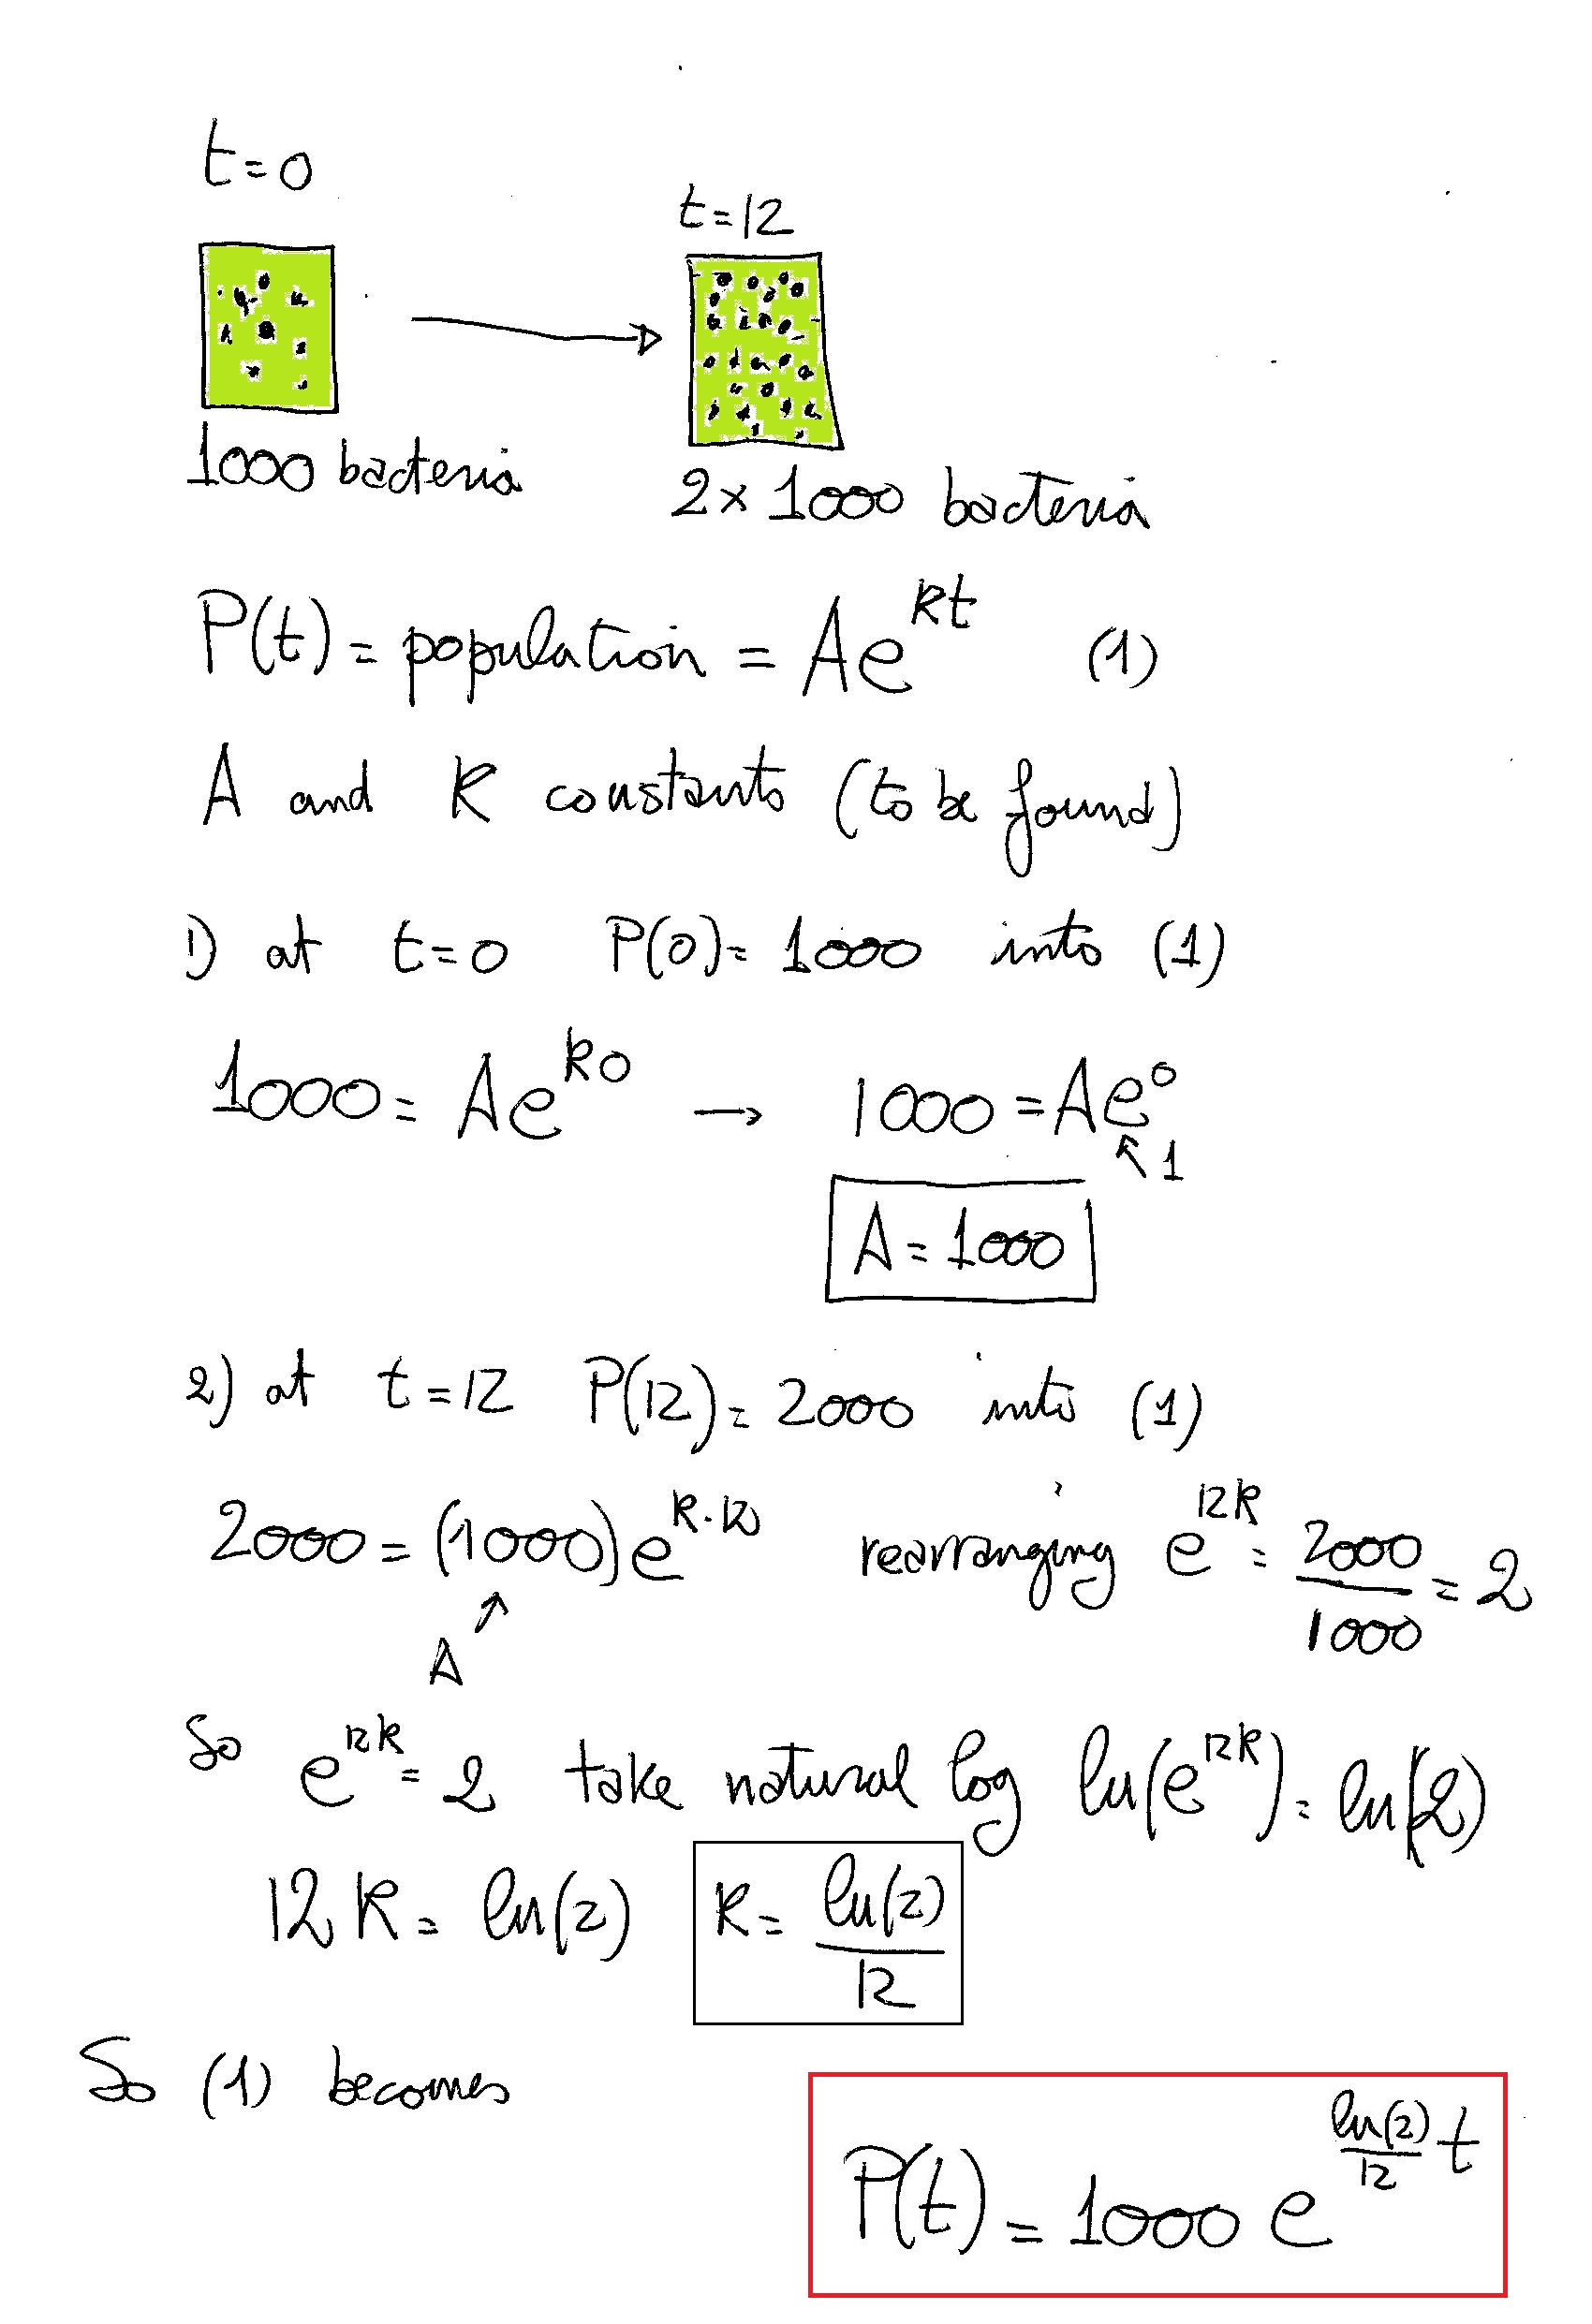 t=0
t=12
1000 bacteria
2x1000 bacteria
P(t) = population = Ae^kt (1)
A and k constants (to be found)
1) at t=0 P(0)=1000 into (1)
1000 = Ae^k0 → 1000 = Ae^0
↖1
A = 1000
2) at t=12 P(12)=2000 into (1)
2000 = (1000)e^k·12 rearranging e^12k = 2000/1000 = 2
A ↗
So e^12k = 2 take natural log ln(e^12k) = ln(2)
12k = ln(2) k = ln(2)/12
So (1) becomes
P(t) = 1000 e^ln(2)/12 t